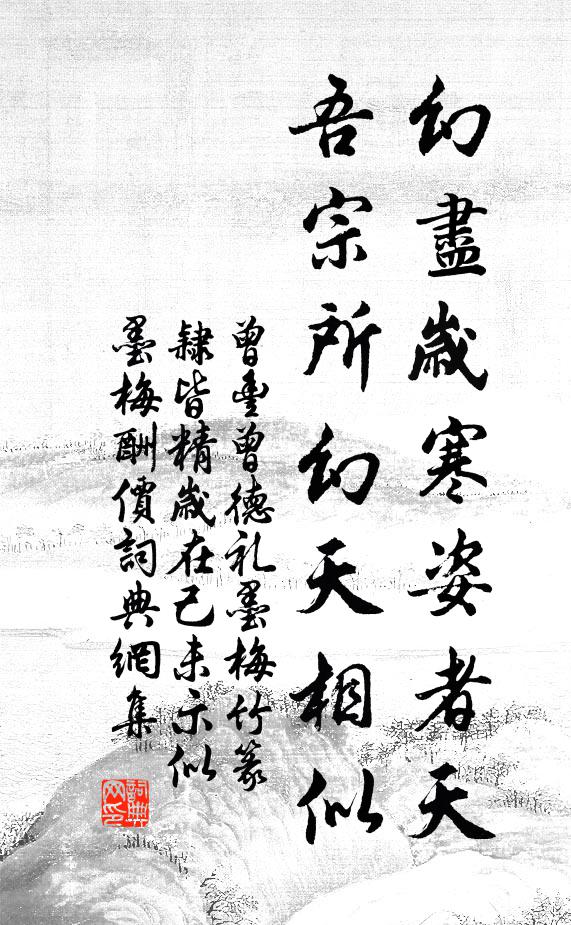 幻盡歲寒姿者天
吾宗所幻天相似
曾豊曾德礼墨梅竹篆
隸皆精歲在己未示似
墨梅酬價詞典網集
詞典
网印